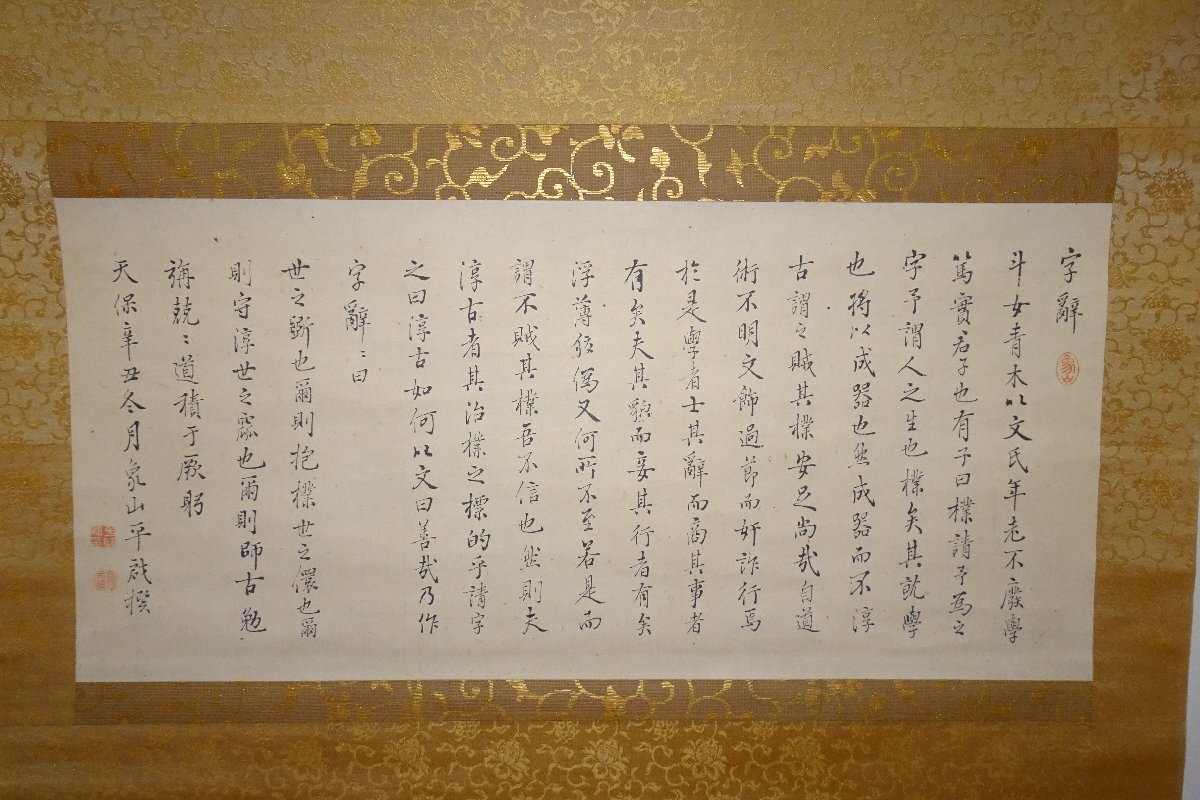 字辭
斗女青木以文氏年老不廢學
篤實君子也有子曰樸請予為之
字予謂人之生也樸矣其就學
也將以成器也然成器而不淳
古謂之賊其樸安足尚哉自道
術不明文飾過節而奸詐行焉
於是學者士其辭而商其事者
有矣夫其貌而妾其行者有矣
浮薄發偽又何所不至若是而
謂不賊其樸吾不信也然則夫
淳古者其治樸之標的乎請字
之曰淳古如何以文曰善哉乃作
字辭〻曰
世之斲也爾則抱樸世之儇也爾
則守淳世之窳也爾則師古勉
旃兢〻道積于厥躬
天保辛丑冬月象山平啟撰
象山